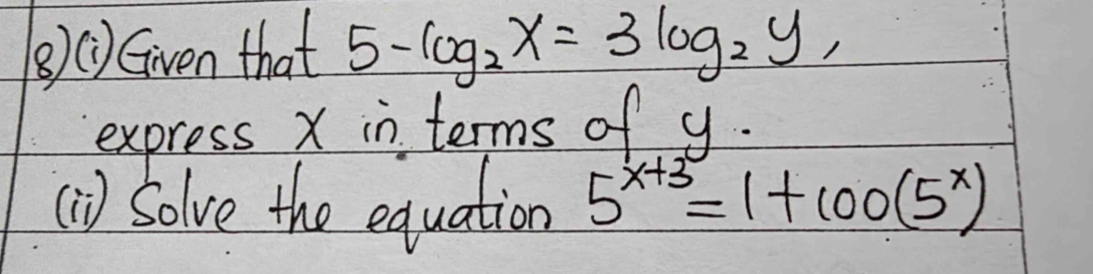 8)(i) Given that 5 - log₂ X = 3 log₂ y,
express X in terms of y.
(ii) Solve the equation 5^(x+3) = 1 + 100(5^x)